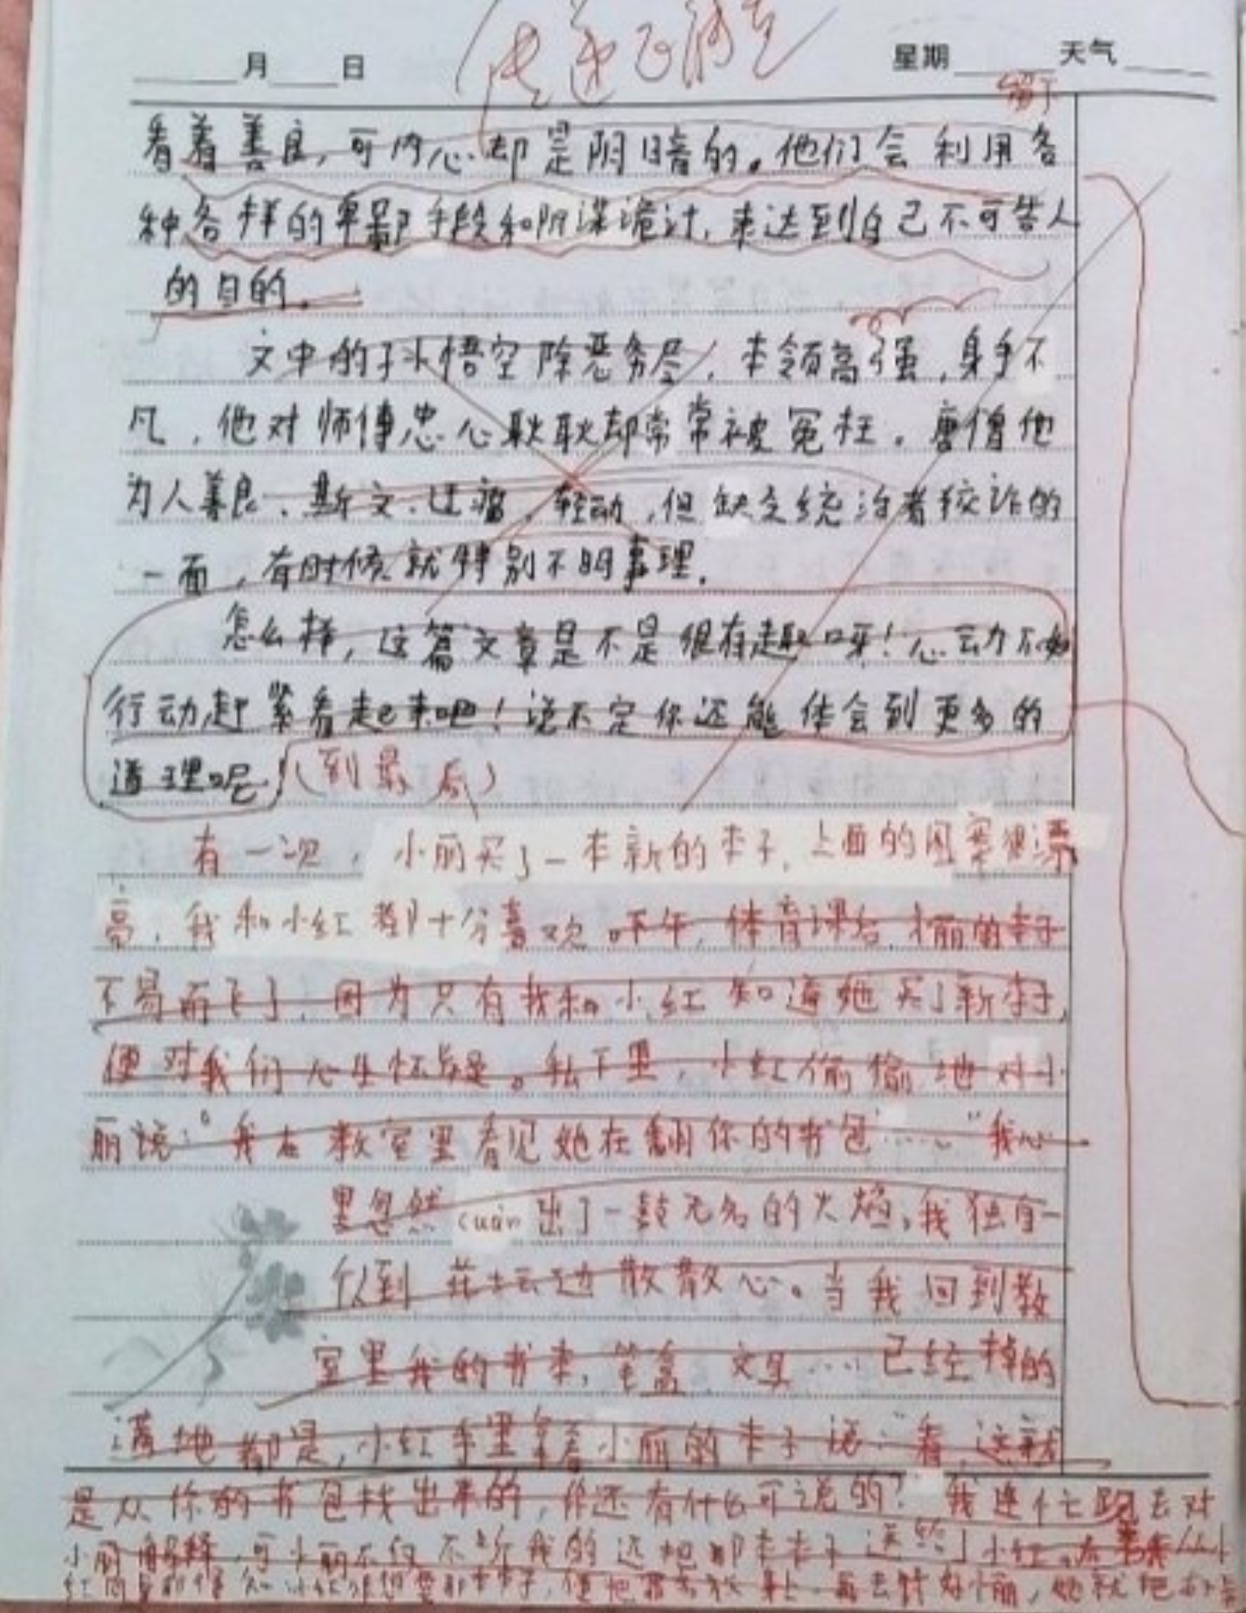 月 日 星期 天气
留下
看着善良,可内心却是阴暗的。他们会利用各
种各样的卑鄙手段和阴谋诡计,来达到自己不可告人
的目的。
文中的孙悟空除恶务尽,本领高强,身手不
凡,他对师傅忠心耿耿却常常被冤枉。唐僧他
为人善良、斯文、迂腐、轻动,但缺乏统治者狡诈的
一面,有时候就特别不明事理。
怎么样,这篇文章是不是很有趣呀!心动不如
行动赶紧看起来吧!说不定你还能体会到更多的
道理呢!(到最后)
有一次,小丽买了一本新的本子,上面的图案很漂
亮,我和小红都十分喜欢。下午,体育课后,小丽的本子
不易而飞了,因为只有我和小红知道她买了新本子,
便对我们心生怀疑。私下里,小红偷偷地对小
丽说:“我在教室里看见她在翻你的书包……”我心
里忽然cuán出了一鼓无名的火焰,我独自一
人到花坛边散散心。当我回到教
室里我的书本,笔盒,文具……已经掉的
满地都是,小红手里拿着小丽的本子说:“看,这就
是从你的书包找出来的,你还有什么可说的?”我连忙跑去对
小丽解释,可小丽不仅不听我的还把那本本子送给了小红。